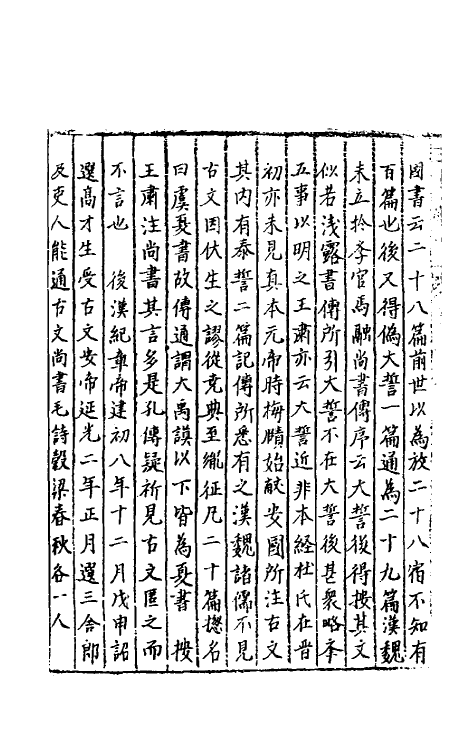 因書云二十八篇前世以為放二十八宿不知有
百篇也後又得偽大誓一篇通為二十九篇漢魏
未立於學官馬融尚書傳序云大誓後得按其文
似若淺露書傳所引大誓不在大誓後甚衆略舉
五事以明之王肅亦云大誓近非本經杜氏在晉
初亦未見真本元帝時梅賾始獻安國所注古文
其內有泰誓二篇記傳所悉有之漢魏諸儒不見
古文因伏生之謬從堯典至胤征凡二十篇揔名
曰虞夏書故傳通謂大禹謨以下皆為夏書 按
王肅注尚書其言多是孔傳疑祈見古文匿之而
不言也 後漢紀章帝建初八年十二月戊申詔
選髙才生受古文安帝延光二年正月選三舍郎
及吏人能通古文尚書毛詩穀梁春秋各一人